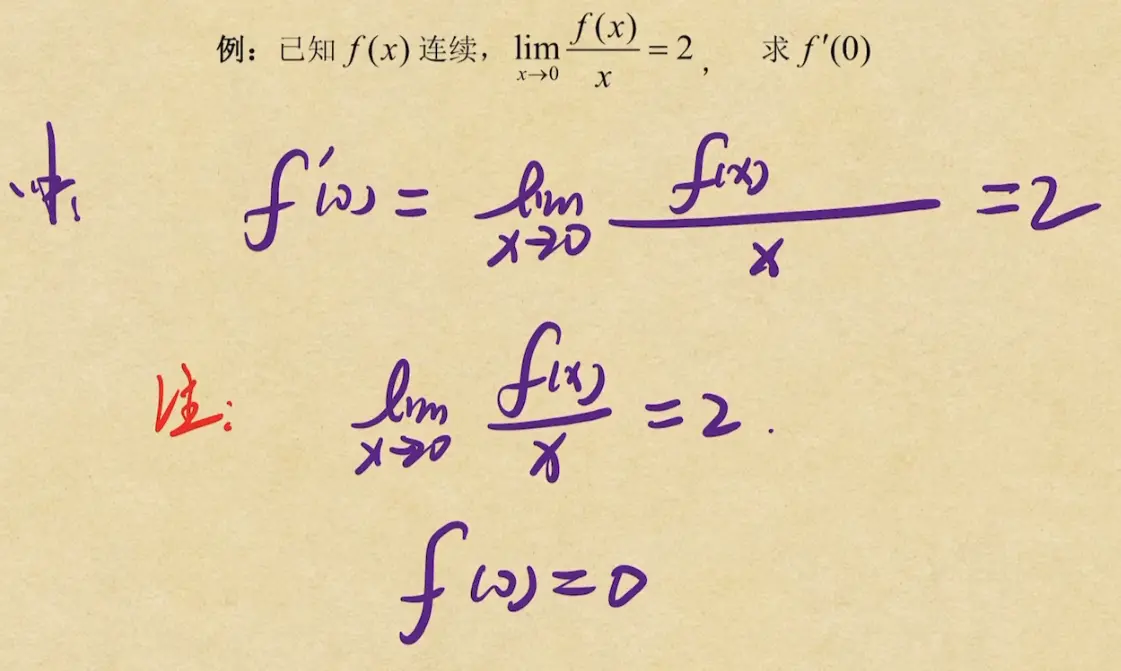 例：已知 f(x) 连续，lim_{x→0} f(x)/x = 2， 求 f′(0)
f′(0) = lim_{x→0} f(x)/x = 2
注: lim_{x→0} f(x)/x = 2.
f(0) = 0